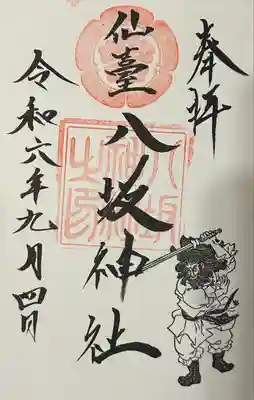 奉拝
仙臺八坂神社
八坂神社之印
令和六年九月四日